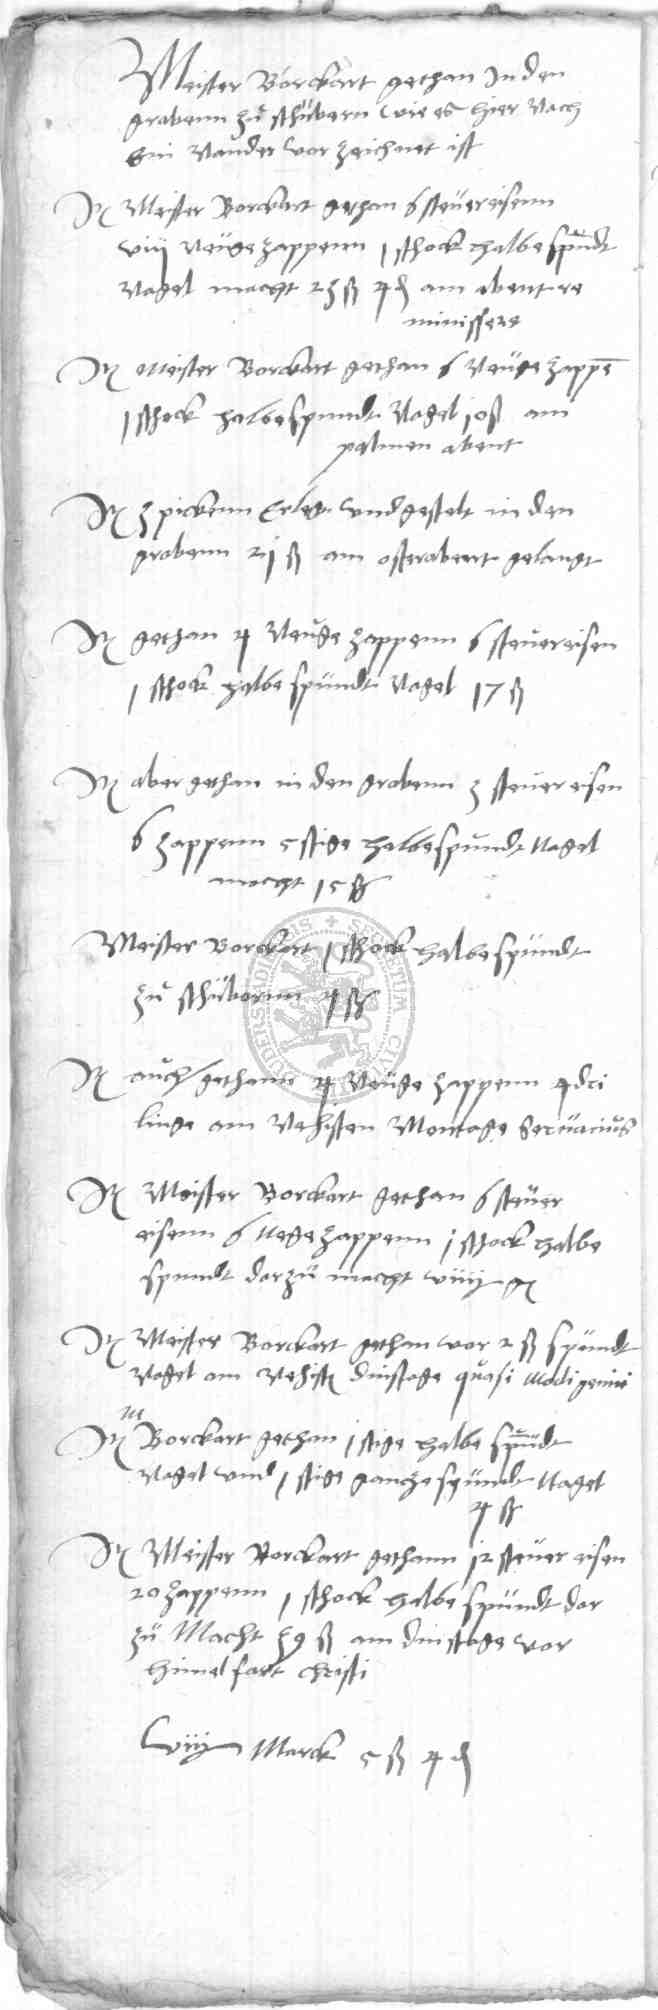 Meister Borckart gethan In den
grabenn zu schubern wie es hier nach
Ein nander vor zeichnet ist
It Meister Borckart gethan 6 steuereisenn
viij neuge zappenn j schock halbe spundt
nagel macht 23 ß 4 d am abent re
minissere
It Meister Borckart gethan 6 neuge zappen
j schock halbe spundt nagel 10 ß am
palmen abent
It 3 pickenn und gestelt in den
grabenn 2j ß am osterabent gelangt
It gethan 4 neuge zappenn 6 steuereisen
j schock halbe spundt nagel 17 ß
It aber gethan in den grabenn 3 steuer eisen
6 zappenn 5 stige halbe spundt nagel
macht 15 ß
Meister Borckart j schock halbe spundt
zu schubornn 4 ß
It auch gethann 4 neuge zappenn 4 dri
linge am nehisten Montage
It Meister Borckart gethan 6 steuer
eisenn 6 nege zappenn j schock halbe
spundt darzu macht
It Meister Borckart gethan vor 2 ß spundt
nagel am nehist dinstage quasi modi genini
M
It Borckart gethan j stige halbe spundt
nagel und j stige gantze spundt nagel
4 ß
It Meister Borckart gethann 12 steuer eisen
20 zappenn j schock halbe spundt dar
zu Macht 39 ß am dinstage vor
himel fart christi
viij Marck 5 ß 4 d